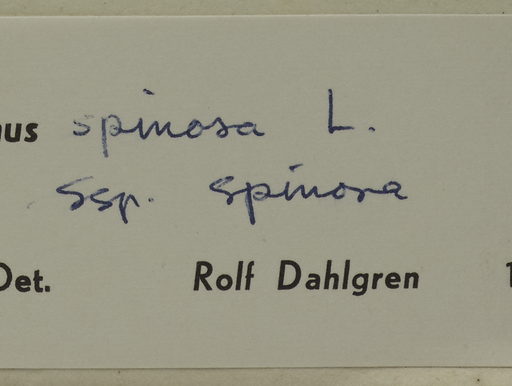 nus spinosa L.
Ssp. spinosa
Det. Rolf Dahlgren 1